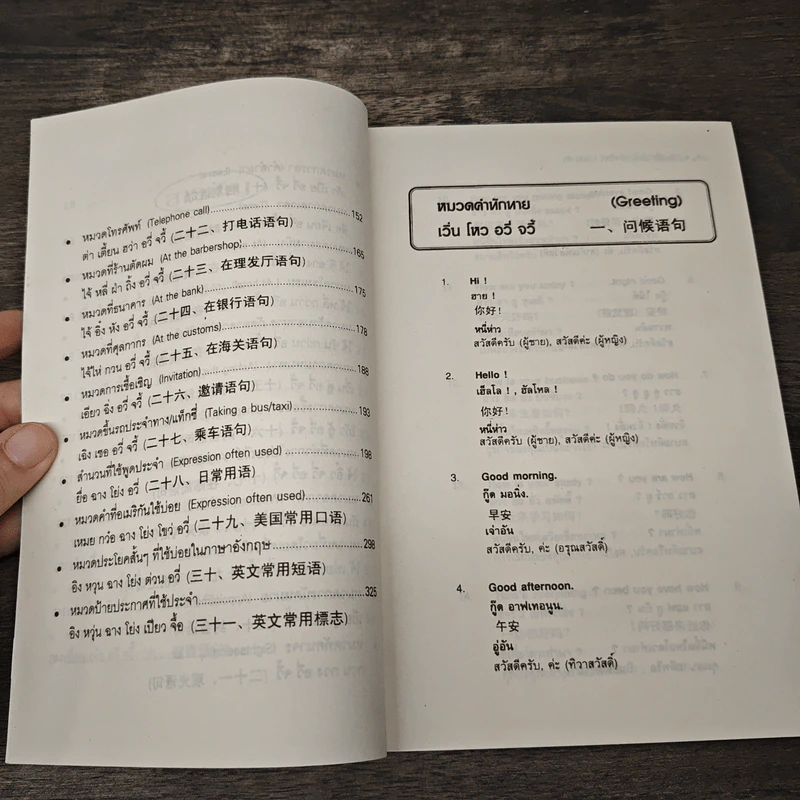 หมวดโทรศัพท์ (Telephone call)............152
ต่า เตี้ยน ฮว่า อวี่ จวี้ (二十二、打电话语句)
หมวดที่ร้านตัดผม (At the barbershop)............165
ไจ้ หลี่ ฝ่า ถิ้ง อวี่ จวี้ (二十三、在理发厅语句)
หมวดที่ธนาคาร (At the bank)............175
ไจ้ อิ๋ง หัง อวี่ จวี้ (二十四、在银行语句)
หมวดที่ศุลกากร (At the customs)............178
ไจ้ไห่ กวน อวี่ จวี้ (二十五、在海关语句)
หมวดการเชื้อเชิญ (Invitation)............188
เอี้ยว อิ่ง อวี่ จวี้ (二十六、邀请语句)
หมวดขึ้นรถประจำทาง/แท็กซี่ (Taking a bus/taxi)............193
เฉิง เชอ อวี่ จวี้ (二十七、乘车语句)
สำนวนที่ใช้พูดประจำ (Expression often used)............198
ยื่อ ฉาง โย่ง อวี่ (二十八、日常用语)
หมวดคำที่อเมริกันใช้บ่อย (Expression often used)............261
เหมย กว๋อ ฉาง โย่ง โขว่ อวี่ (二十九、美国常用口语)
หมวดประโยคสั้นๆ ที่ใช้บ่อยในภาษาอังกฤษ............298
อิง หวุน ฉาง โย่ง ต่วน อวี่ (三十、英文常用短语)
หมวดป้ายประกาศที่ใช้ประจำ............325
อิง หวุ่น ฉาง โย่ง เปียว จื้อ (三十一、英文常用標志)
หมวดคำทักทาย (Greeting)
เวิ่น โหว อวี่ จวี้ 一、问候语句
1. Hi !
ฮาย !
你好!
หนี่ห่าว
สวัสดีครับ (ผู้ชาย), สวัสดีค่ะ (ผู้หญิง)
2. Hello !
เฮ็ลโล ! , ฮัลโหล !
你好!
หนี่ห่าว
สวัสดีครับ (ผู้ชาย), สวัสดีค่ะ (ผู้หญิง)
3. Good morning.
กู๊ด มอนิ่ง.
早安
เจ่าอัน
สวัสดีครับ, ค่ะ (อรุณสวัสดิ์)
4. Good afternoon.
กู๊ด อาฟเทอนูน.
午安
อู่อัน
สวัสดีครับ, ค่ะ (ทิวาสวัสดิ์)